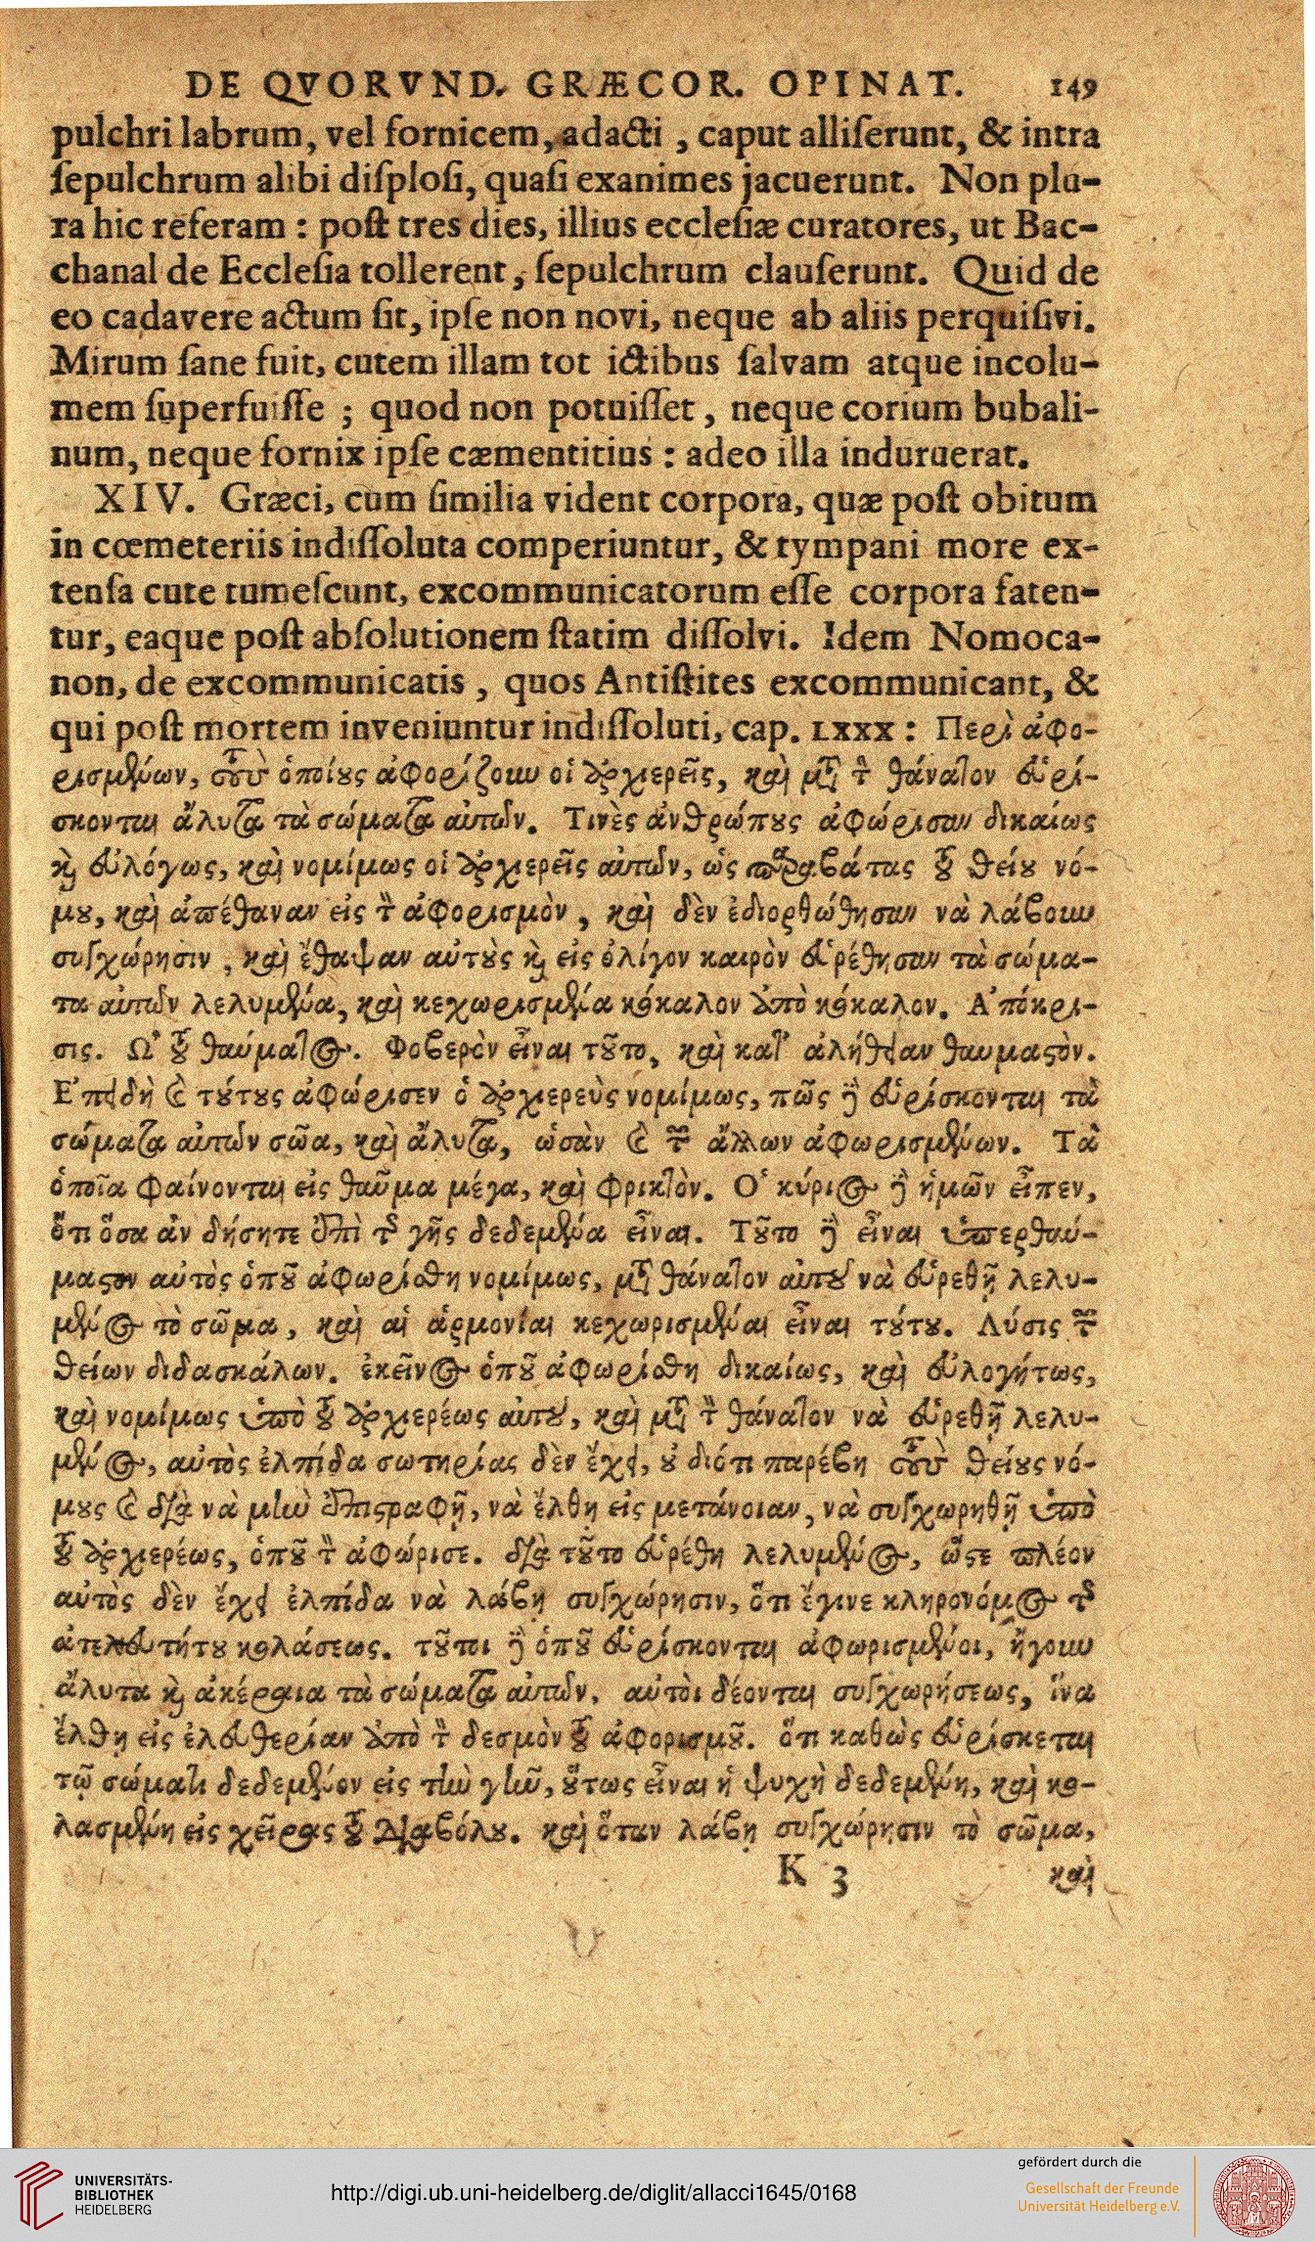 DE QVORVND. GRÆCOR. OPINAT. 149
pulchri labrum, vel fornicem, adacti, caput alliſerunt, & intra
ſepulchrum alibi diſploſi, quaſi exanimes jacuerunt. Non plu-
ra hic referam : poſt tres dies, illius eccleſiæ curatores, ut Bac-
chanal de Eccleſia tollerent, ſepulchrum clauſerunt. Quid de
eo cadavere actum ſit, ipſe non novi, neque ab aliis perquiſivi.
Mirum ſane fuit, cutem illam tot ictibus ſalvam atque incolu-
mem ſuperfuiſſe ; quod non potuiſſet, neque corium bubali-
num, neque fornix ipſe cæmentitius : adeo illa induruerat.
XIV. Græci, cum ſimilia vident corpora, quæ poſt obitum
in cœmeteriis indiſſoluta comperiuntur, & tympani more ex-
tenſa cute tumeſcunt, excommunicatorum eſſe corpora faten-
tur, eaque poſt abſolutionem ſtatim diſſolvi. Idem Nomoca-
non, de excommunicatis, quos Antiſtites excommunicant, &
qui poſt mortem inveniuntur indiſſoluti, cap. LXXX : Περὶ ἀφο-
ρισμένων, τοὺς ὁποίους ἀφορίζουν οἱ ἀρχιερεῖς, καὶ μετὰ τὸν θάνατον εὑρί-
σκονται ἄλυτα τὰ σώματα αὐτῶν. Τινὲς ἀνθρώπους ἀφώρισαν δικαίως
καὶ εὐλόγως, καὶ νομίμως οἱ ἀρχιερεῖς αὐτῶν, ὡς παραβάτας τοῦ θείου νό-
μου, καὶ ἀπέθαναν εἰς τὸν ἀφορισμὸν, καὶ δὲν ἐδιορθώθησαν νὰ λάβουν
συγχώρησιν, καὶ ἔθαψαν αὐτοὺς καὶ εἰς ὀλίγον καιρὸν εὑρέθησαν τὰ σώμα-
τα αὐτῶν λελυμένα, καὶ κεχωρισμένα κόκαλον ἀπὸ κόκαλον. Ἀπόκρι-
σις. Ὢ τοῦ θαύματος. Φοβερὸν εἶναι τοῦτο, καὶ κατ' ἀλήθειαν θαυμαστόν.
Ἐπειδὴ καὶ τούτους ἀφώρισεν ὁ ἀρχιερεὺς νομίμως, πῶς δὲ εὑρίσκονται τὰ
σώματα αὐτῶν σῶα, καὶ ἄλυτα, ὡσὰν καὶ τῶν ἄλλων ἀφωρισμένων. Τὰ
ὁποῖα φαίνονται εἰς θαῦμα μέγα, καὶ φρικτὸν. Ὁ κύριος δὲ ἡμῶν εἶπεν,
ὅτι ὅσα ἀν δήσητε ἐπὶ τῆς γῆς δεδεμένα εἶναι. Τοῦτο δὲ εἶναι ὑπερθαύ-
μαστον αὐτὸς ὁποῦ ἀφωρίσθη νομίμως, μετὰ θάνατον αὐτοῦ νὰ εὑρεθῇ λελυ-
μένος τὸ σῶμα, καὶ αἱ ἁρμονίαι κεχωρισμέναι εἶναι τούτου. Λύσις τῶν
θείων διδασκάλων. ἐκεῖνος ὁποῦ ἀφωρίσθη δικαίως, καὶ εὐλογήτως,
καὶ νομίμως ὑπὸ τοῦ ἀρχιερέως αὐτοῦ, καὶ μετὰ τὸν θάνατον νὰ εὑρεθῇ λελυ-
μένος, αὐτὸς ἐλπίδα σωτηρίας δὲν ἔχει, οὐ διότι παρέβη τοὺς θείους νό-
μους καὶ διὰ νὰ μὴν ἐπιστραφῇ, νὰ ἔλθῃ εἰς μετάνοιαν, νὰ συγχωρηθῇ ὑπὸ
τοῦ ἀρχιερέως, ὁποῦ τὸν ἀφώρισε. διὰ τοῦτο εὑρέθη λελυμένος, ὥστε πλέον
αὐτὸς δὲν ἔχει ἐλπίδα νὰ λάβῃ συγχώρησιν, ὅτι ἔγινε κληρονόμος τῆς
ἀτελευτήτου κολάσεως. τοῦτοι δὲ ὁποῦ εὑρίσκονται ἀφωρισμένοι, ἤγουν
ἄλυτα καὶ ἀκέραια τὰ σώματα αὐτῶν, αὐτοὶ δέονται συγχωρήσεως, ἵνα
ἔλθῃ εἰς ἐλευθερίαν ἀπὸ τὸν δεσμὸν τοῦ ἀφορισμοῦ. ὅτι καθὼς εὑρίσκεται
τῷ σώματι δεδεμένον εἰς τὴν γῆν, οὕτως εἶναι ἡ ψυχὴ δεδεμένη, καὶ κο-
λασμένη εἰς χεῖρας τοῦ Διαβόλου. καὶ ὅταν λάβῃ συγχώρησιν τὸ σῶμα,
K 3 καὶ
UNIVERSITÄTS-
BIBLIOTHEK
HEIDELBERG
http://digi.ub.uni-heidelberg.de/diglit/allacci1645/0168
gefördert durch die
Gesellschaft der Freunde
Universität Heidelberg e.V.